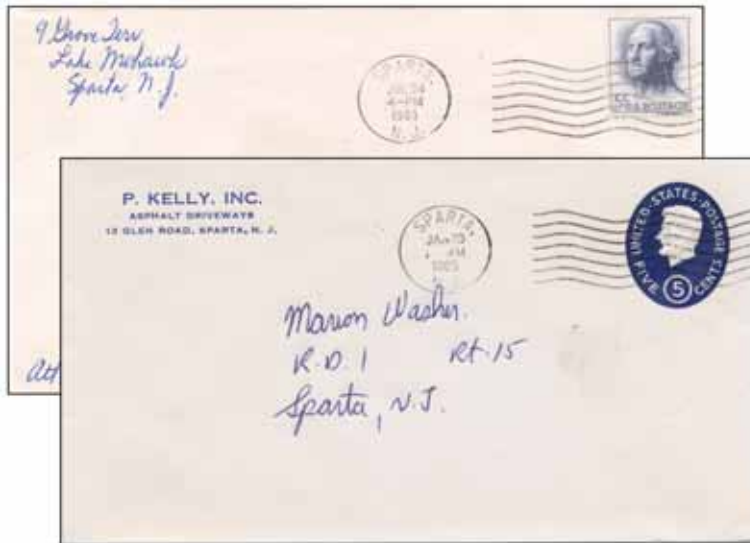 9 Grove Terr
Lake Mohawk
Sparta, N.J.
SPARTA,
4-PM
1965
N. J.
5 C
U.S. POSTAGE
P. KELLY, INC.
ASPHALT DRIVEWAYS
12 GLEN ROAD, SPARTA, N. J.
SPARTA,
JAN 25
PM
1965
UNITED STATES POSTAGE
FIVE 5 CENTS
Marion Washer
R.D. 1 Rt. 15
Sparta, N.J.